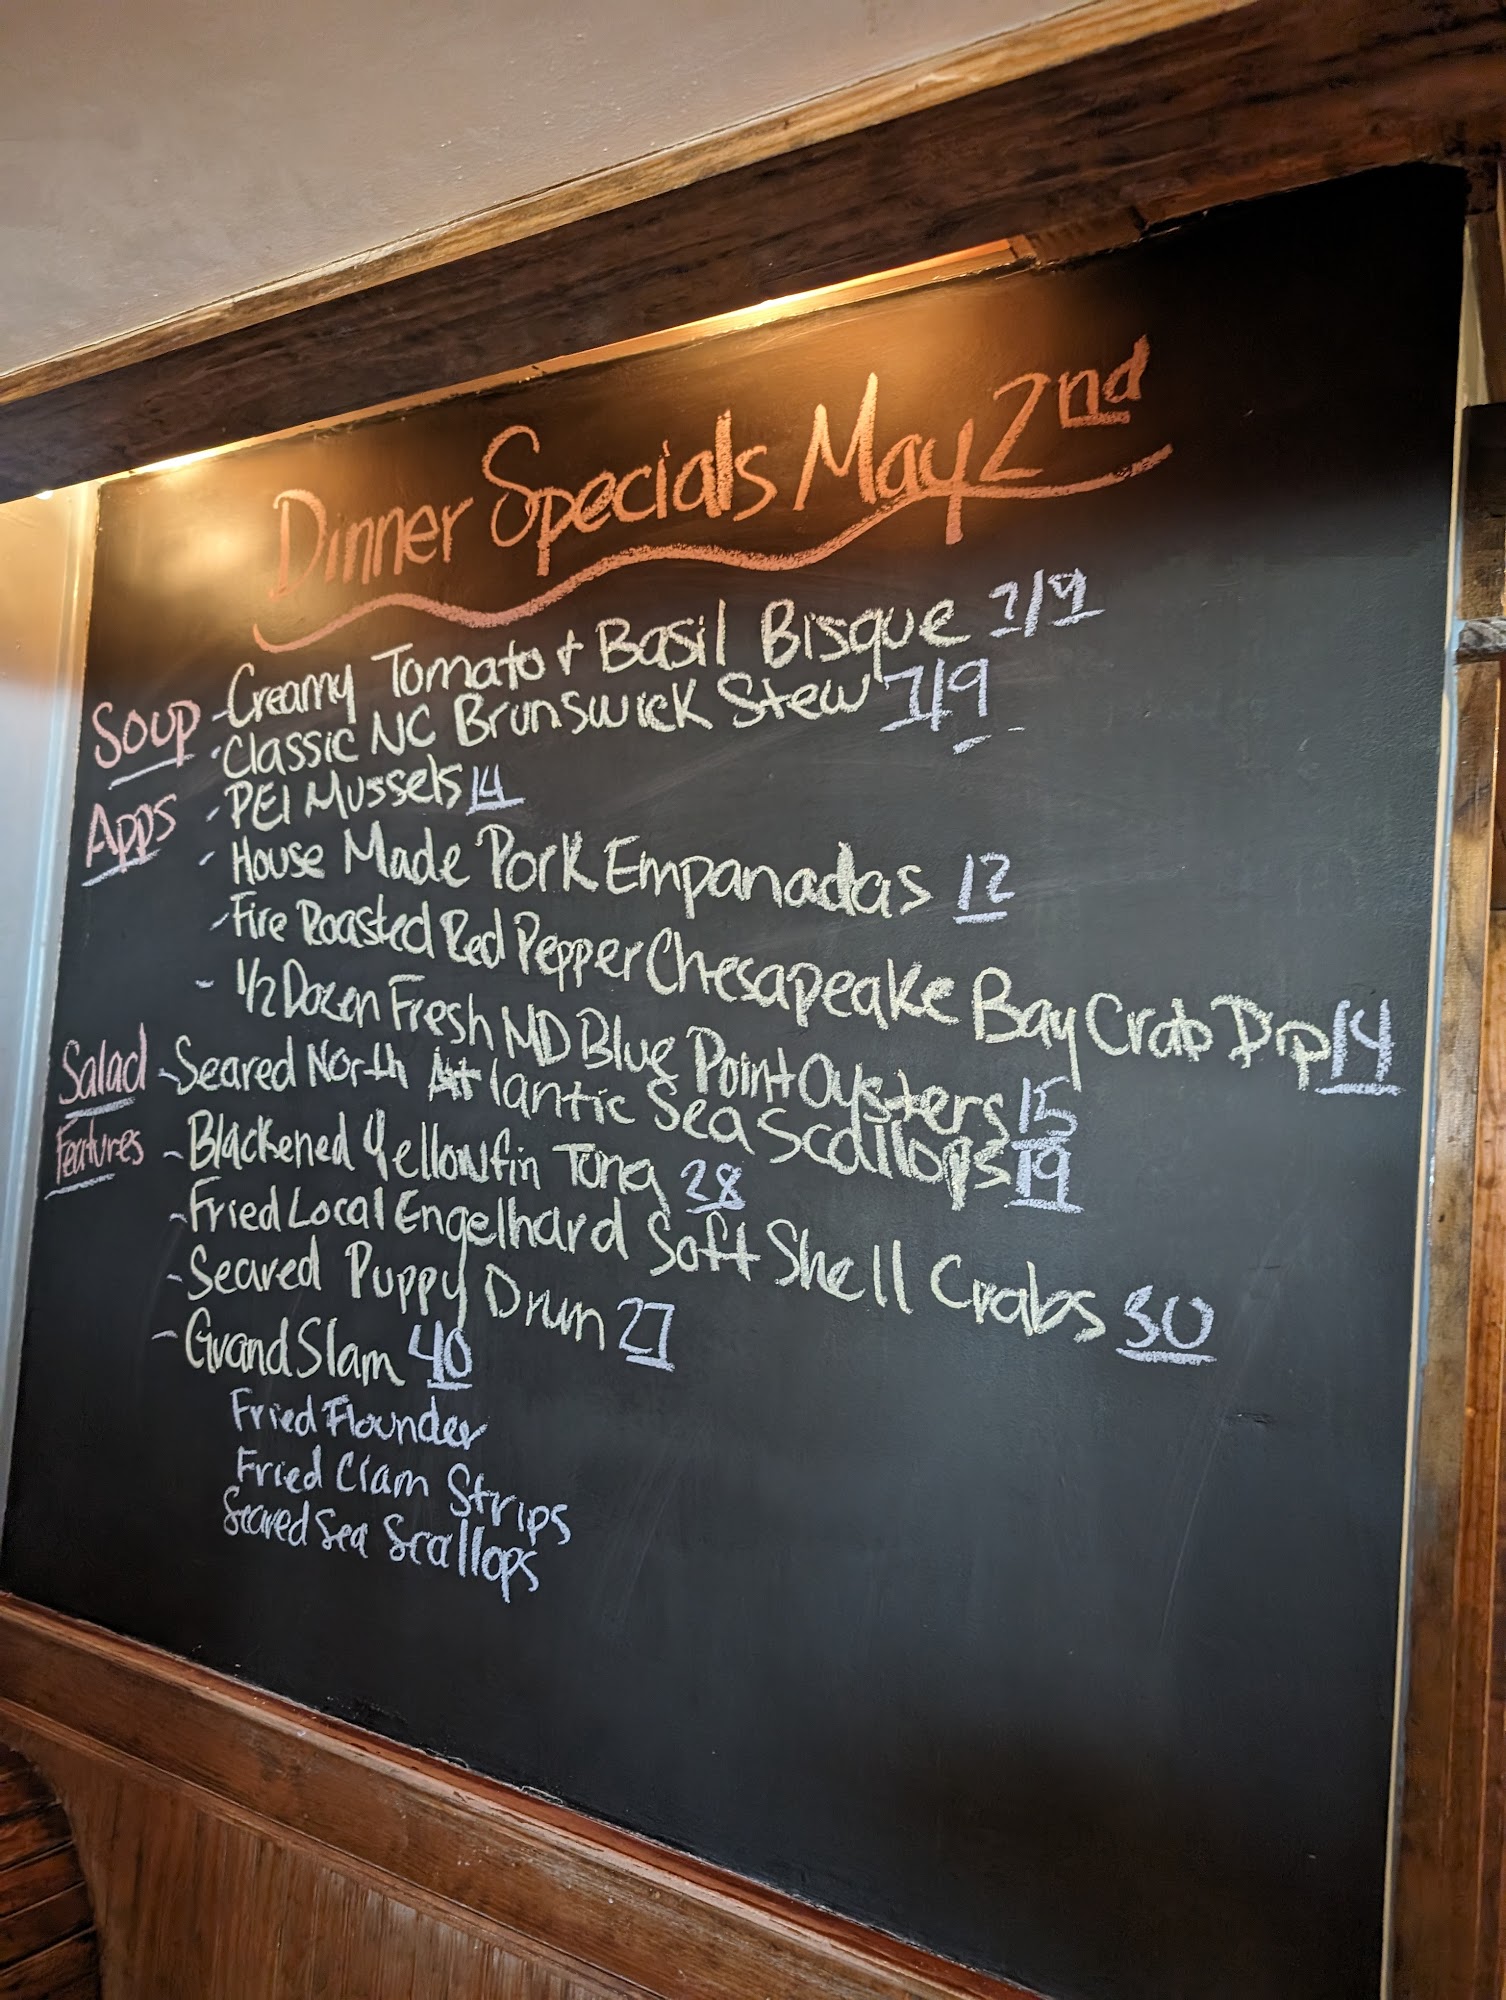 Dinner Specials May 2nd
Soup - Creamy Tomato + Basil Bisque 7/9
- Classic NC Brunswick Stew 7/9
Apps - PEI Mussels 14
- House Made Pork Empanadas 12
- Fire Roasted Red Pepper Chesapeake Bay Crab Dip 14
- 1/2 Dozen Fresh MD Blue Point Oysters 15
Salad - Seared North Atlantic Sea Scallops 19
Features - Blackened Yellowfin Tuna 28
- Fried Local Engelhard Soft Shell Crabs 30
- Seared Puppy Drum 27
- Grand Slam 40
Fried Flounder
Fried Clam Strips
Seared Sea Scallops